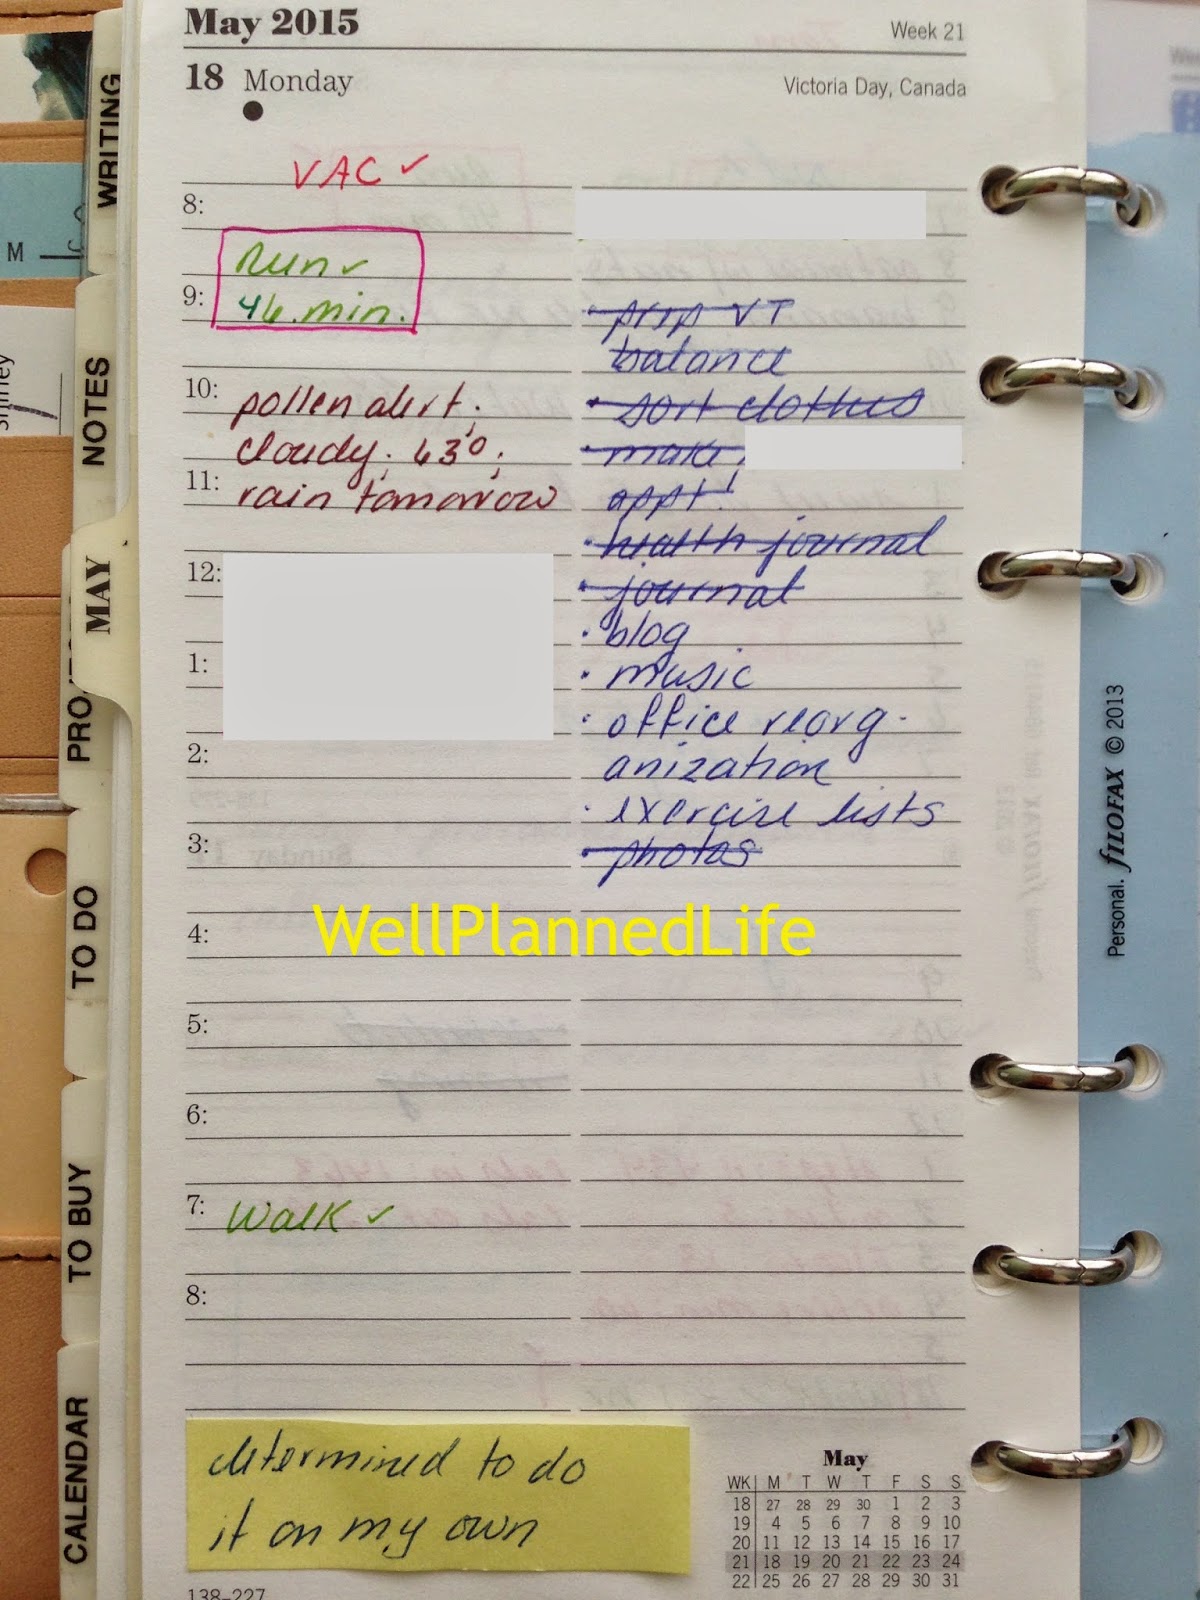 May 2015
Week 21
18 Monday
Victoria Day, Canada
VAC ✓
8:
Run ✓
9:
46 min.
10:
pollen alert;
cloudy; 63°;
11:
rain tomorrow
12:
1:
2:
3:
4:
5:
6:
7:
Walk ✓
8:
· prep VT
balance
· sort clothes
· make
appt!
· health journal
· journal
· blog
· music
· office reorg-
anization
· exercise lists
· photos
WellPlannedLife
determined to do
it on my own
138-227
May
WK M T W T F S S
18 27 28 29 30 1 2 3
19 4 5 6 7 8 9 10
20 11 12 13 14 15 16 17
21 18 19 20 21 22 23 24
22 25 26 27 28 29 30 31
WRITING
NOTES
MAY
TO DO
TO BUY
CALENDAR
M
Personal. FILOFAX © 2013